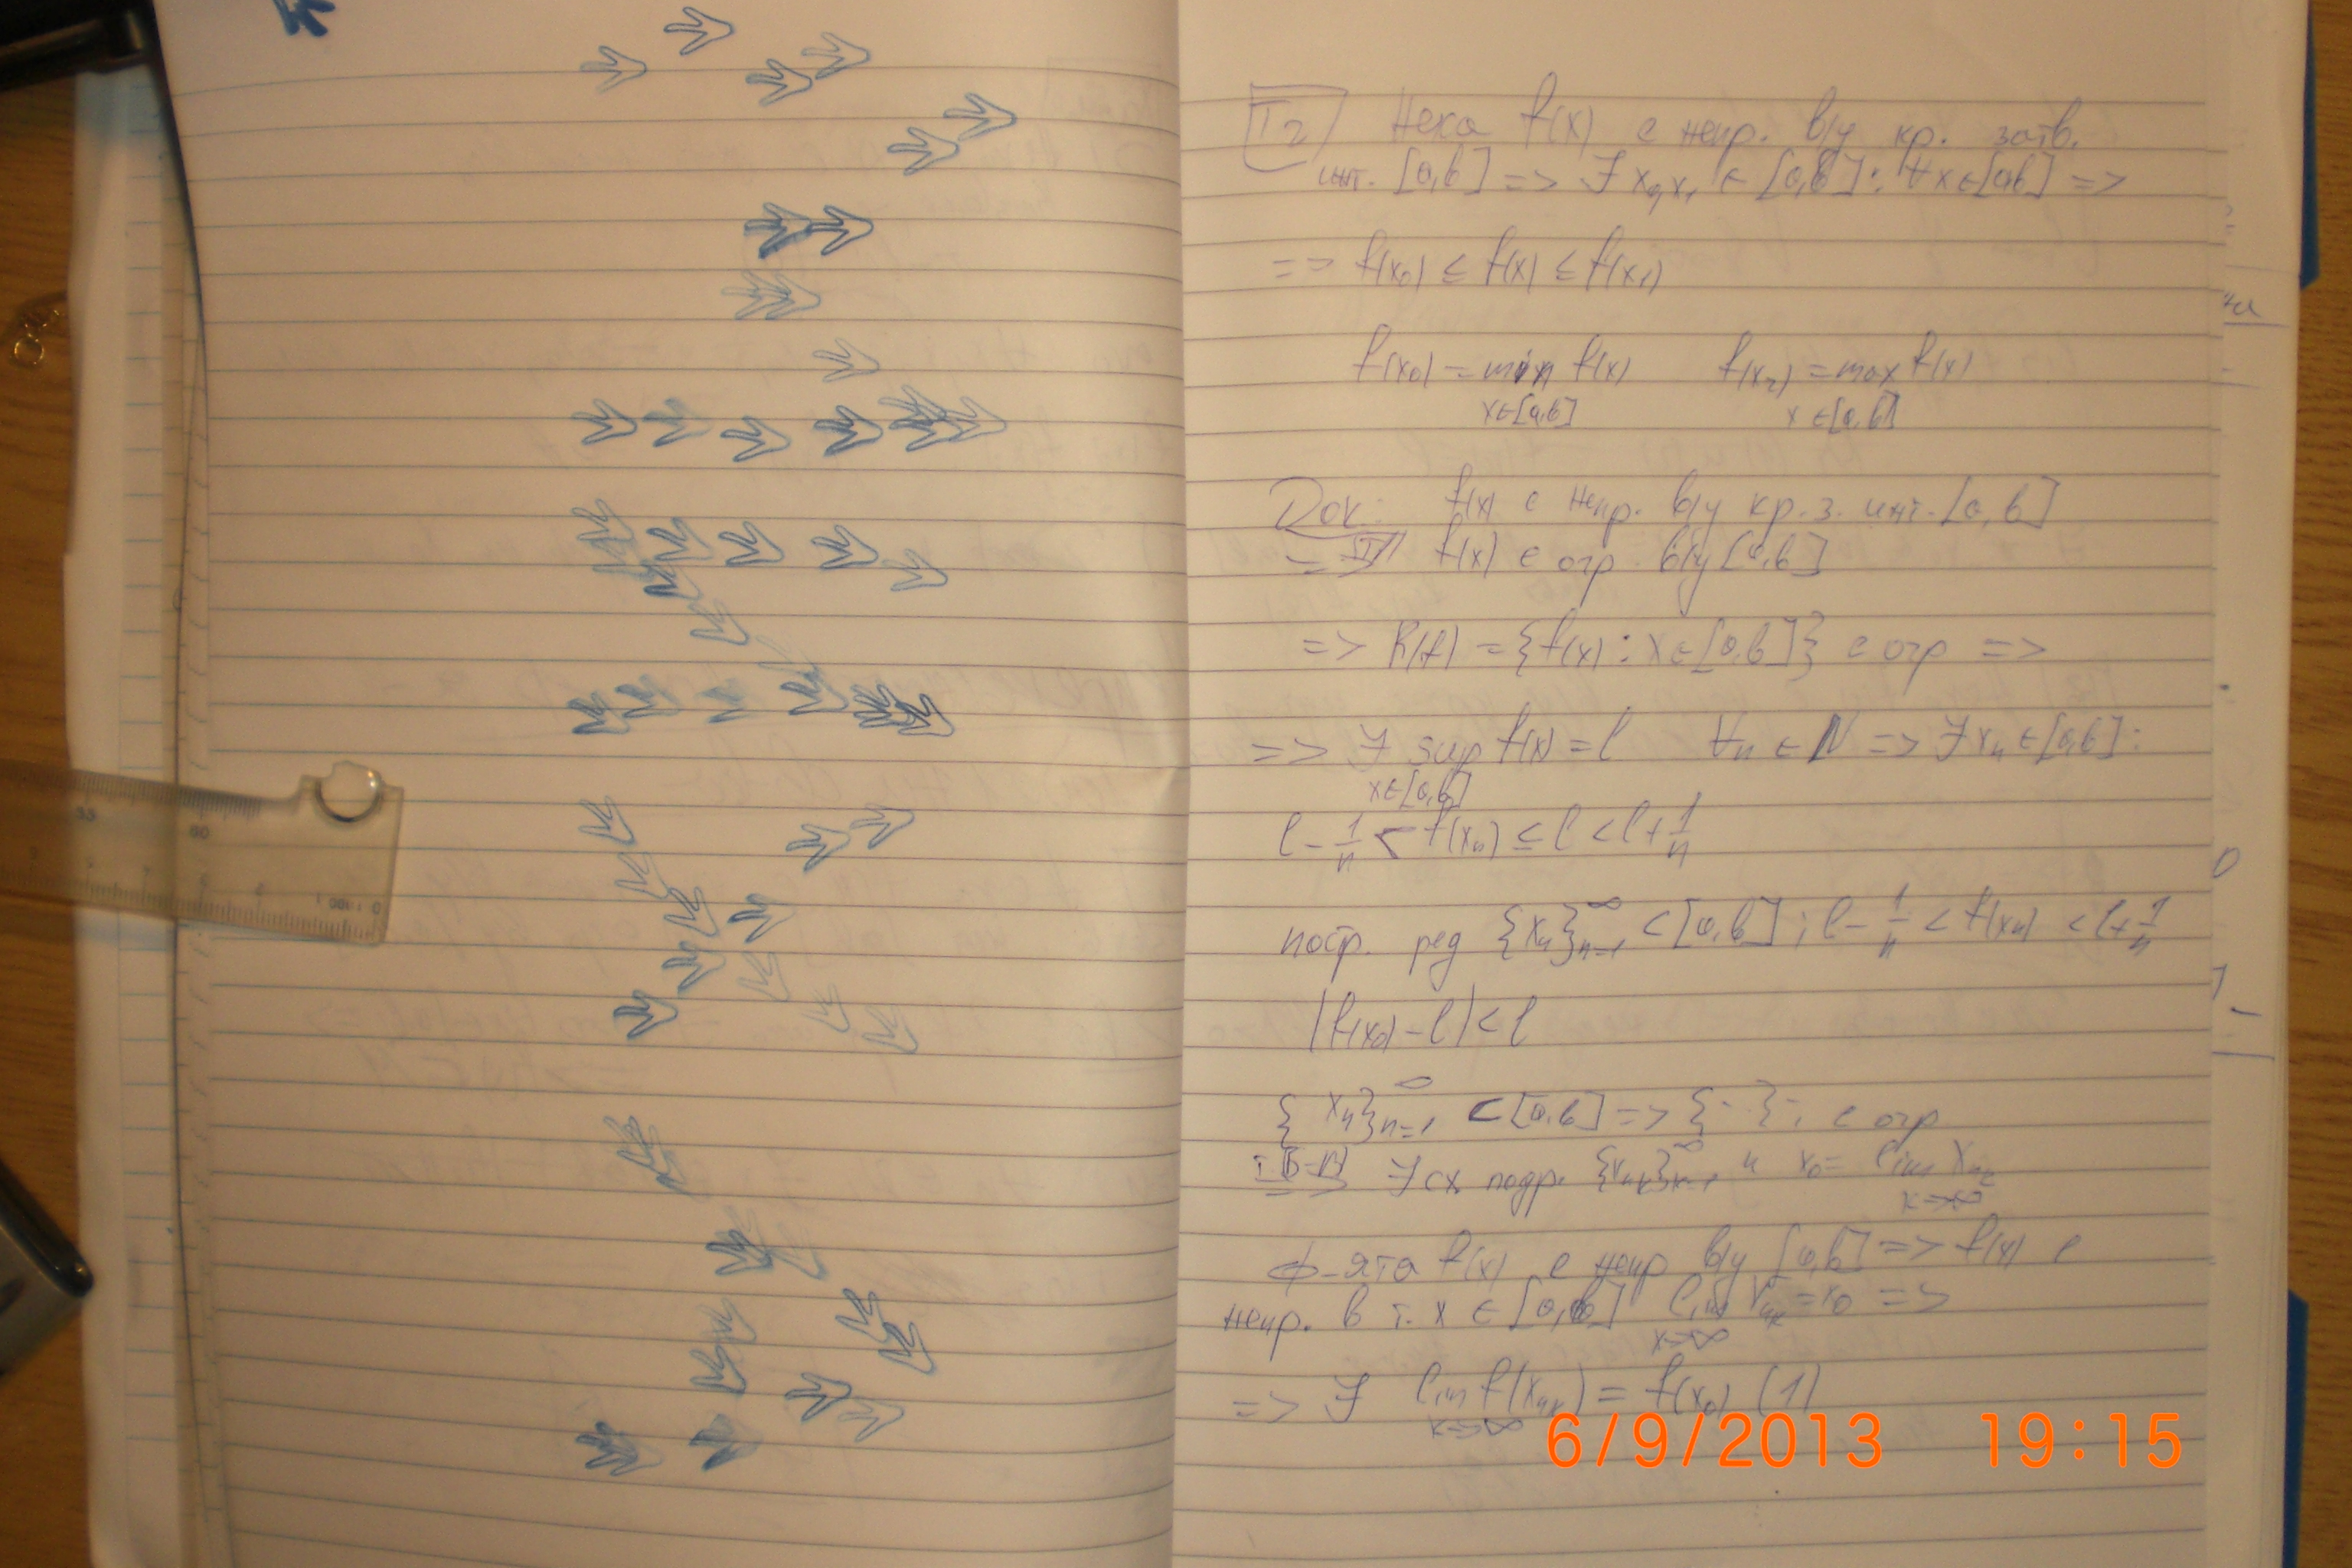 T2 Нека f(x) е непр. в/у кр. затв.
инт. [a,b] => ∃ x0, x1 ∈ [a,b] : ∀x∈[a,b] =>
=> f(x0) ≤ f(x) ≤ f(x1)
f(x0) = min f(x) f(x2) = max f(x)
x∈[a,b] x∈[a,b]
Док: f(x) е непр. в/у кр. з. инт. [a,b]
f(x) е огр. в/у [a,b]
=> R(f) = {f(x) : x∈[a,b]} е огр =>
=> ∃ sup f(x) = l ∀n ∈ N => ∃ xn ∈ [a,b] :
x∈[a,b]
l - 1/n < f(xn) ≤ l < l + 1/n
постр. ред {xn}n=1^∞ ⊂ [a,b] ; l - 1/n < f(xn) < l + 1/n
|f(x0) - l| < l
{xn}n=1^∞ ⊂ [a,b] => { - } - , е огр
т. Б-В => ∃ сх. подр. {xnk}k=1^∞ и x0 = lim xnk
k→∞
ф-ята f(x) е непр в/у [a,b] => f(x) е
непр. в т. x ∈ [a,b] lim xnk = x0 =>
k→∞
=> ∃ lim f(xnk) = f(x0) (1)
k→∞
6/9/2013 19:15
60